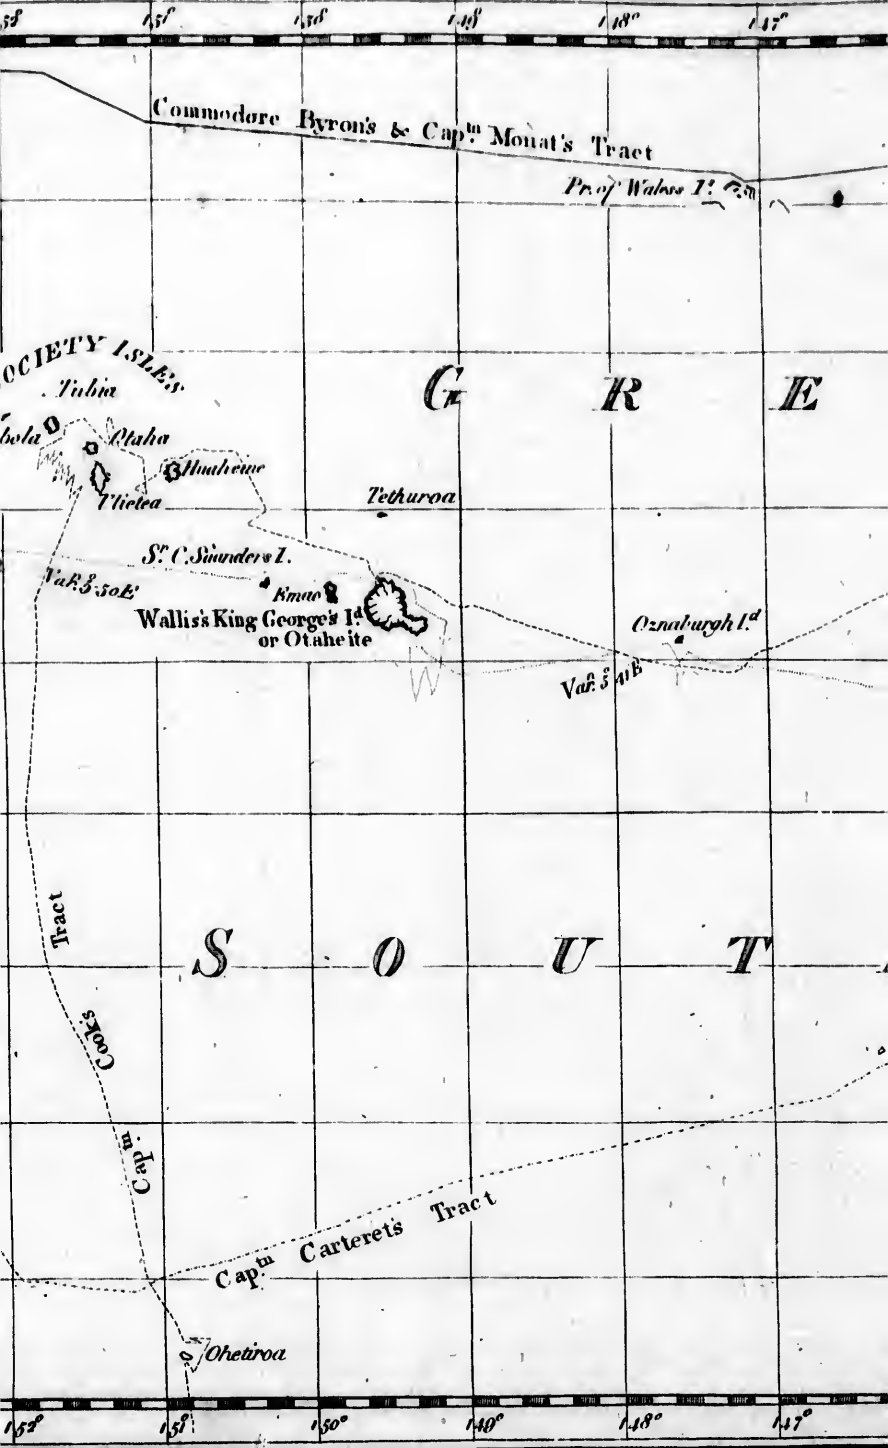 151° 150 149° 148° 147°
Commodore Byron's & Capᵗⁿ. Mouat's Tract
Pr. of Wales's Iˢ.
OCIETY ISLES
G R E
Tubia
bola
Otaha
Huaheine
Ulietea
Tethuroa
Sʳ. C. Saunders I.
Varⁿ. 5°.50 E
Emao
Wallis's King George's Iᵈ.
or Otaheite
Oznaburgh Iᵈ
Varⁿ. 5° 41 E
S O U T
Tract
Cook's
Capᵗⁿ.
Capᵗⁿ Carteret's Tract
Ohetiroa
152° 151° 150° 149° 148° 147°